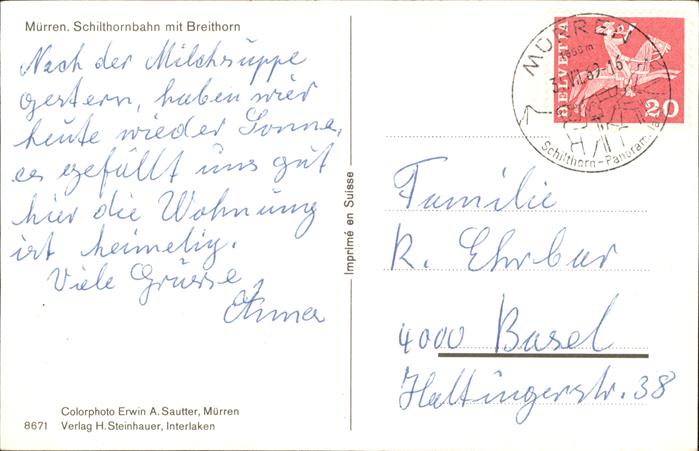 Mürren. Schilthornbahn mit Breithorn
Nach der Milchsuppe
gestern, haben wier
heute wieder Sonne,
es gefällt uns gut
hier die Wohnung
ist heimelig.
Viele Grüsse
Colorphoto Erwin A. Sautter, Mürren
8671 Verlag H. Steinhauer, Interlaken
Imprimé en Suisse
MÜRREN
1650 m
Schilthorn-Panorama
HELVETIA
20
Familie
R. Ehrbar
4000 Basel
Haltingerstr. 38